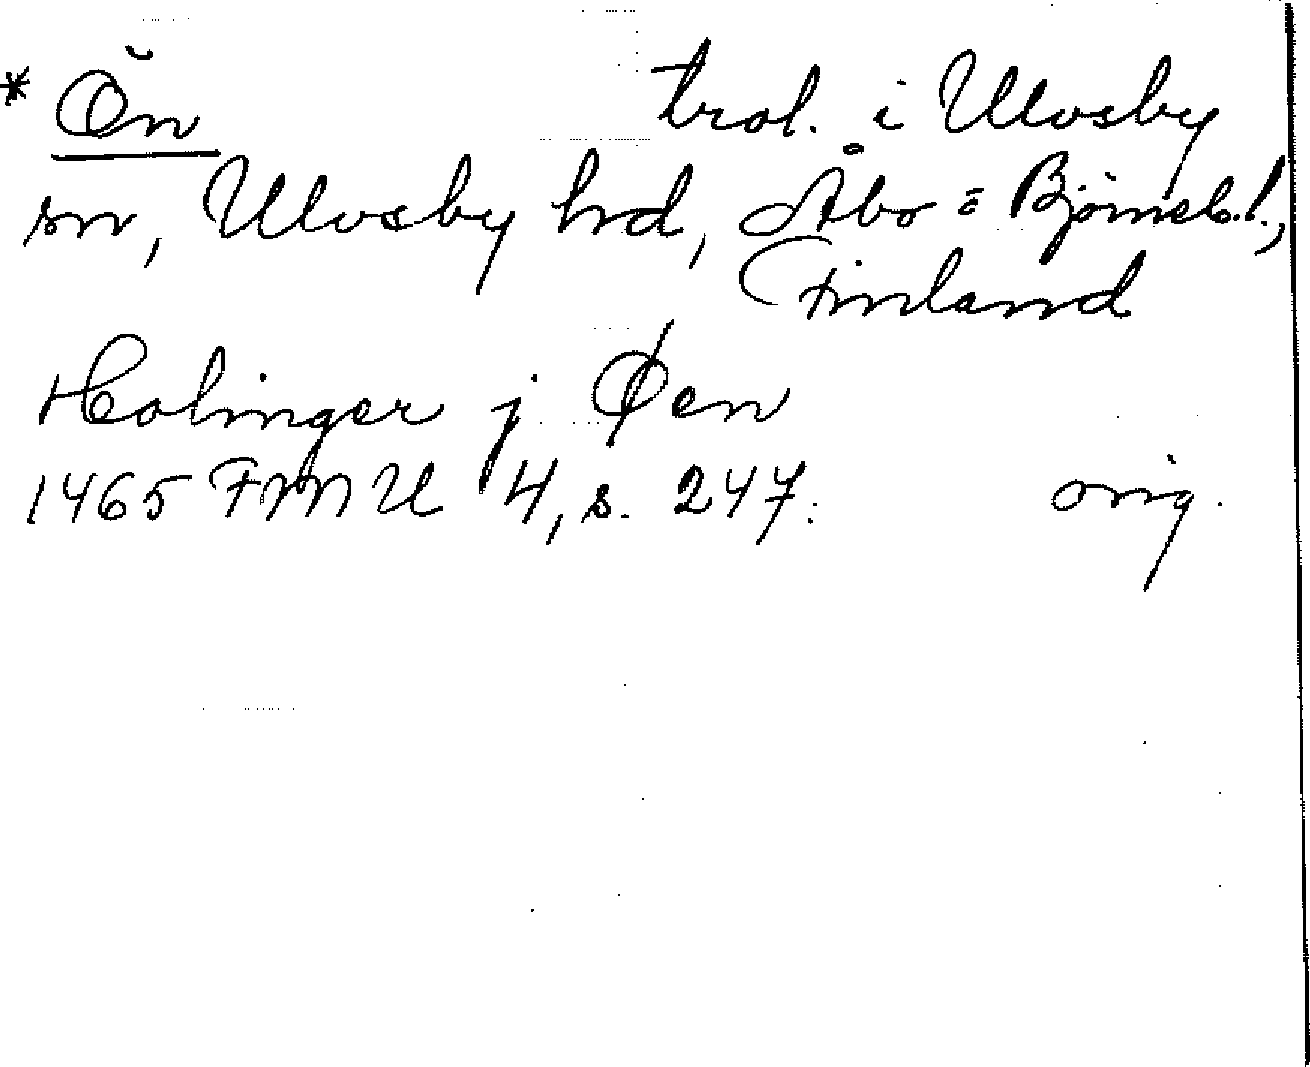 * Ön trol. i Ulvsby
sn, Ulvsby hd, Åbo = Björneb. l.,
Finland
Holinger j Øen
1465 FMU 4, s. 247. orig.